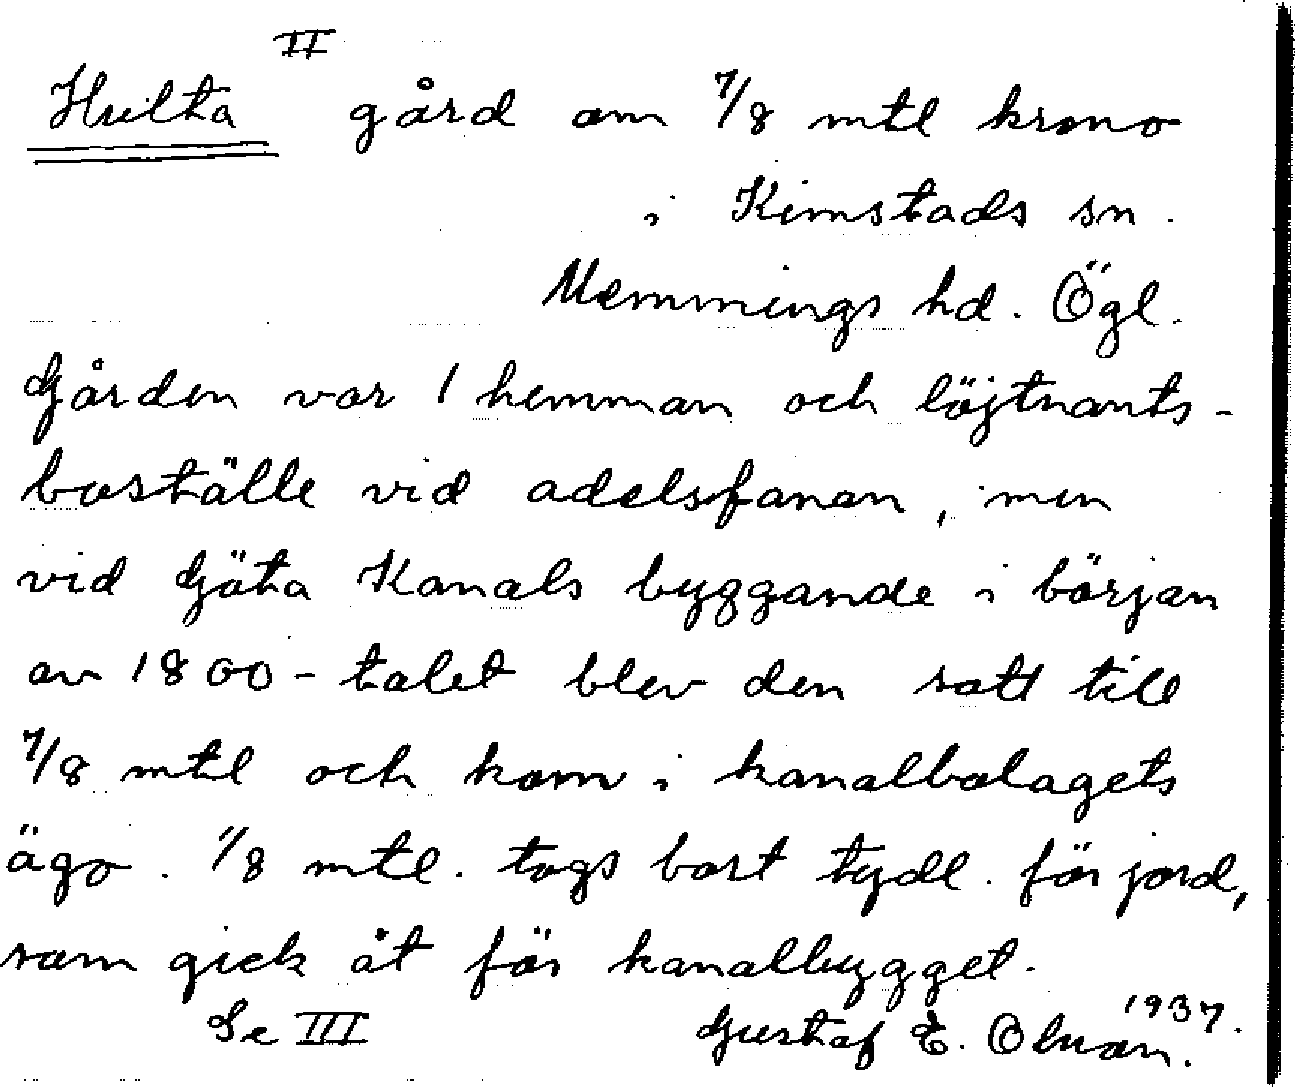 II
Hulta gård om 7/8 mtl krono
i Kimstads sn.
Memmings hd. Ögl.
Gården var 1 hemman och löjtnants-
boställe vid adelsfanan, men
vid Göta Kanals byggande i början
av 1800-talet blev den satt till
7/8 mtl och kom i kanalbolagets
ägo. 1/8 mtl. togs bort tydl. för jord,
som gick åt för kanalbygget.
Se III Gustaf E. 1937.